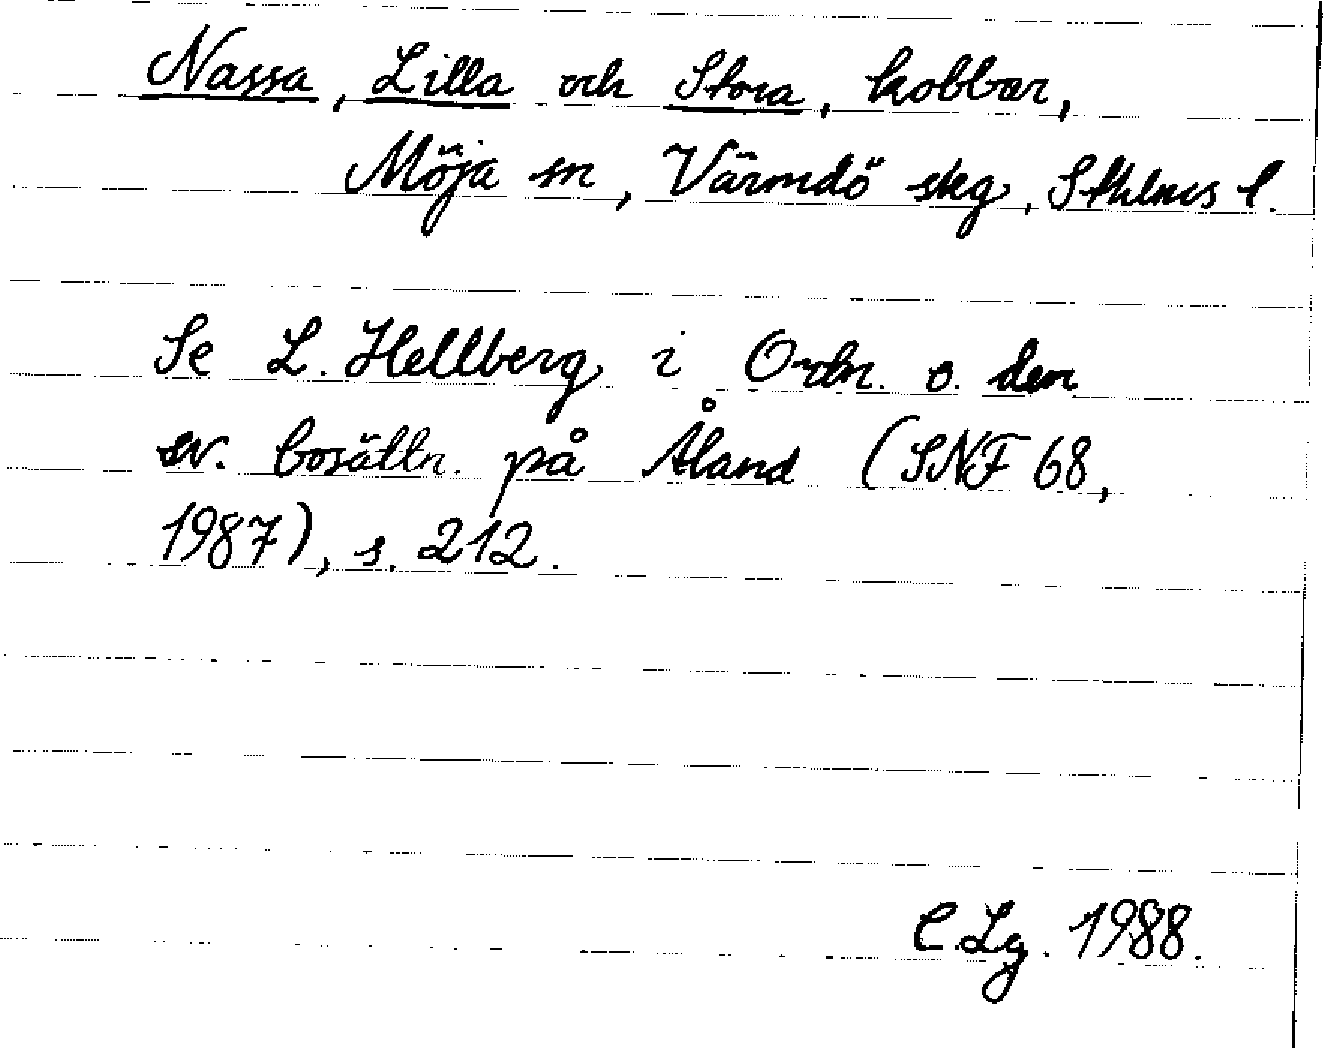 Nassa, Lilla och Stora, kobbar,
Möja sn, Värmdö skg, Sthlms l.
Se L. Hellberg i Ortn. o. den
sv. bosättn. på Åland (SNF 68,
1987), s. 212.
C.Lg. 1988.